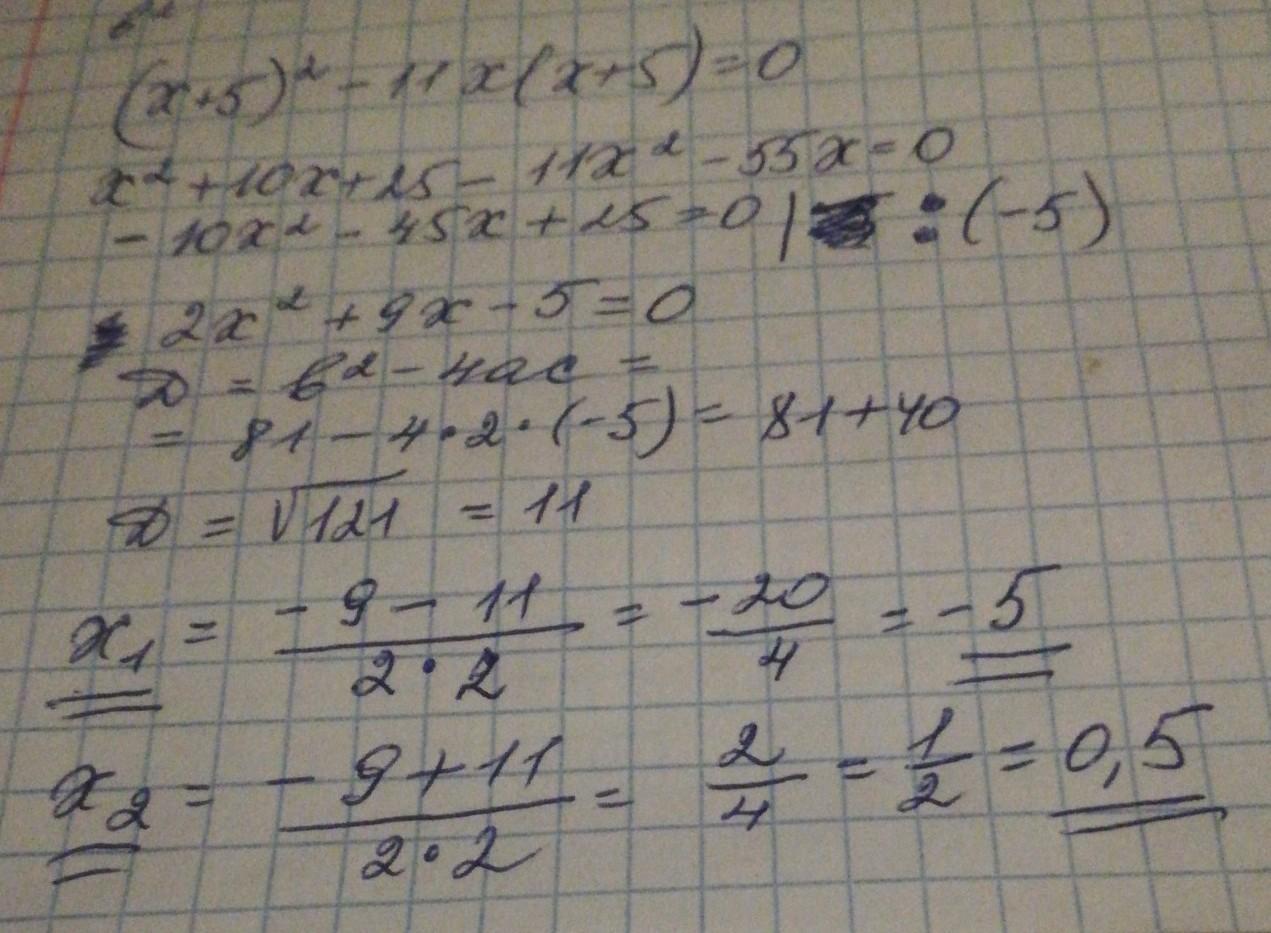 (x+5)² - 11x(x+5) = 0
x² + 10x + 25 - 11x² - 55x = 0
- 10x² - 45x + 25 = 0 | : (-5)
2x² + 9x - 5 = 0
D = b² - 4ac =
= 81 - 4·2·(-5) = 81 + 40
D = √121 = 11
x₁ = (-9 - 11)/(2·2) = -20/4 = -5
x₂ = (-9 + 11)/(2·2) = 2/4 = 1/2 = 0,5